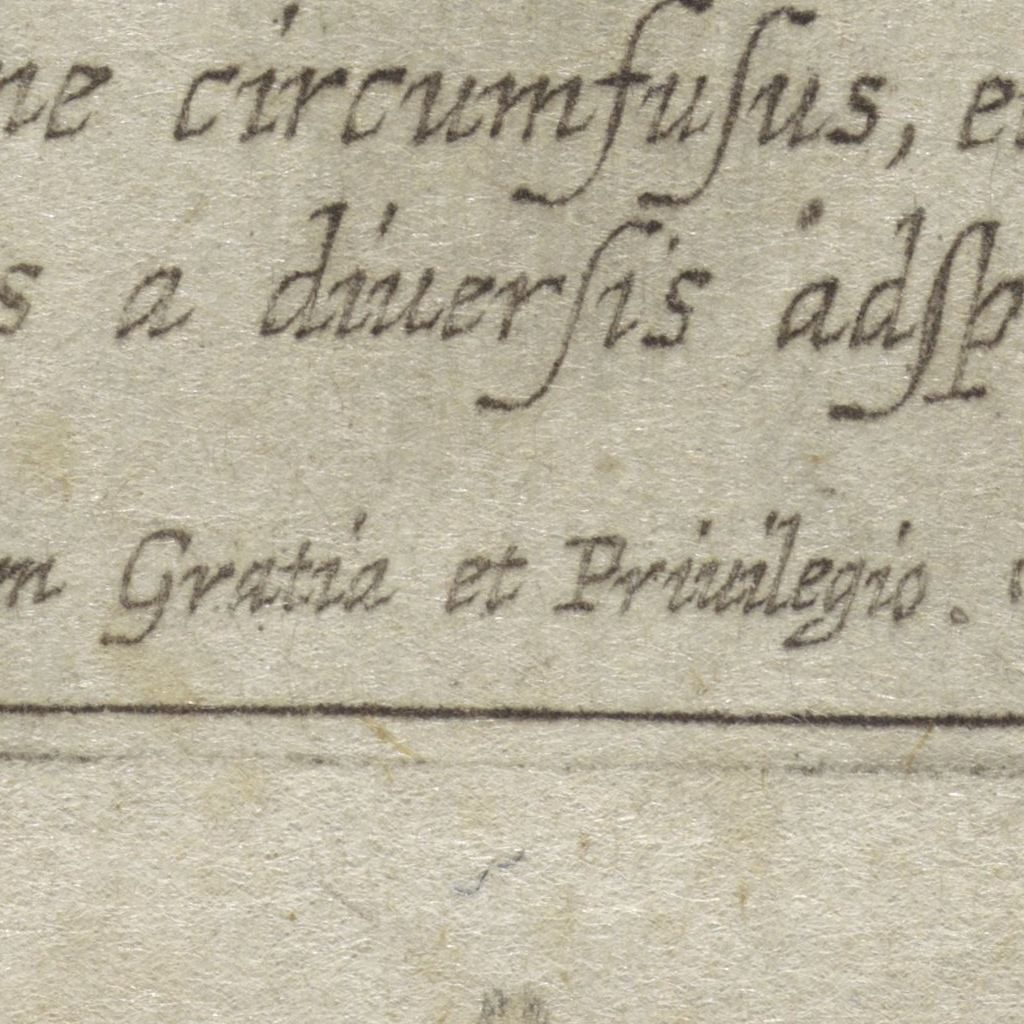 ne circumfuſus, et
s a diuerſis adſp
m Gratia et Priuilegio.